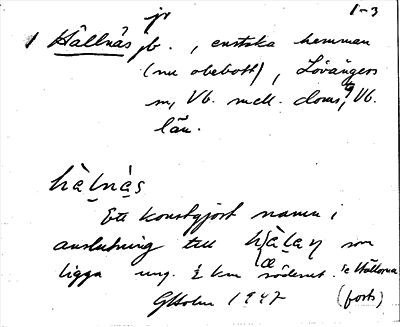 jr 1-3
1 Hällnäs jb., enstaka hemman
(nu obebott), Lövångers
sn, Vb. mell. doms., Vb.
län.
hàlnàs
Ett konstgjort namn i
anslutning till hàlan som
ligga ung. ½ km söderut. Se Hällorna
GHolm 1947 (forts)